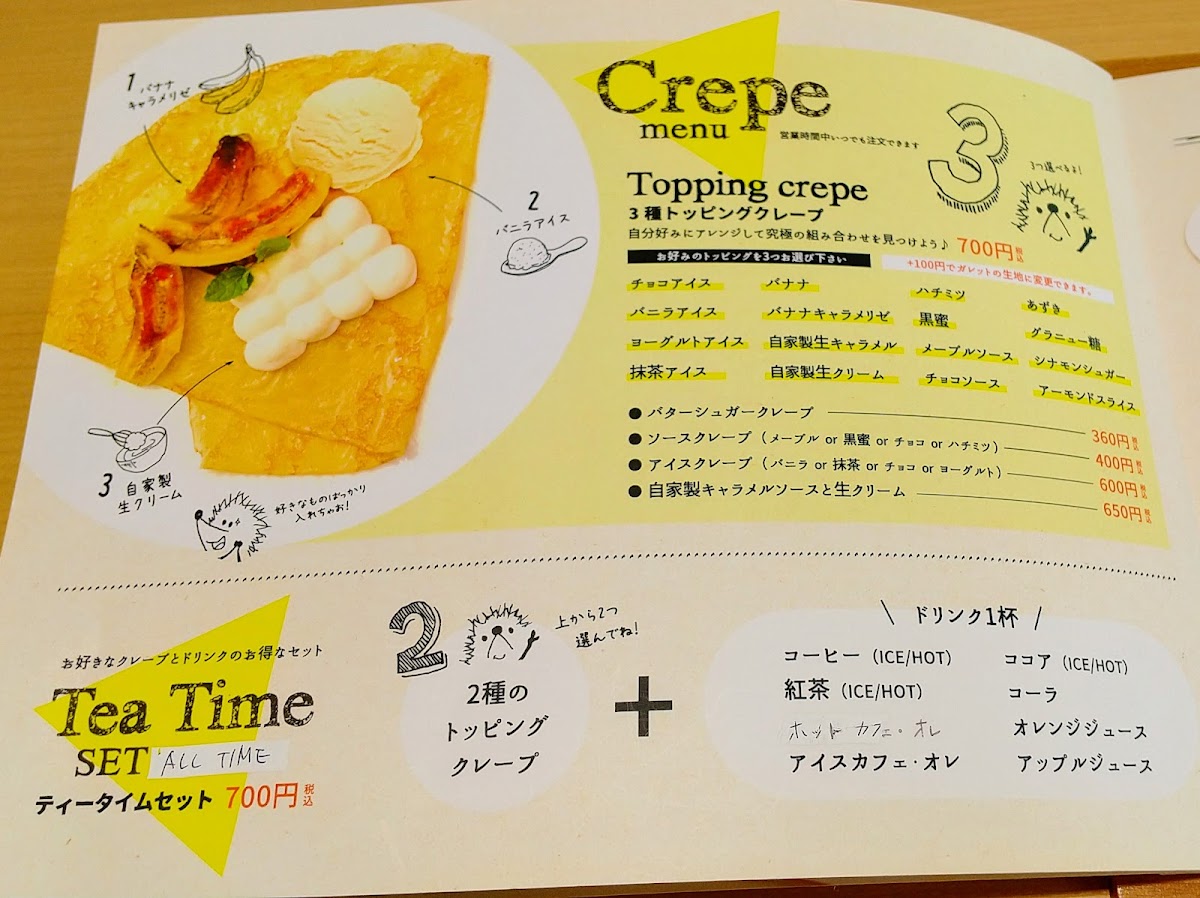 1 バナナ
キャラメリゼ
2
バニラアイス
3 自家製
生クリーム
好きなものばっかり
入れちゃお!
Crepe
menu
営業時間中いつでも注文できます
3
3つ選べるよ!
Topping crepe
3種トッピングクレープ
自分好みにアレンジして究極の組み合わせを見つけよう♪ 700円 税込
お好みのトッピングを3つお選び下さい
+100円でガレットの生地に変更できます。
チョコアイス バナナ ハチミツ あずき
バニラアイス バナナキャラメリゼ 黒蜜 グラニュー糖
ヨーグルトアイス 自家製生キャラメル メープルソース シナモンシュガー
抹茶アイス 自家製生クリーム チョコソース アーモンドスライス
● バターシュガークレープ 360円 税込
● ソースクレープ (メープル or 黒蜜 or チョコ or ハチミツ) 400円 税込
● アイスクレープ (バニラ or 抹茶 or チョコ or ヨーグルト) 600円 税込
● 自家製キャラメルソースと生クリーム 650円 税込
お好きなクレープとドリンクのお得なセット
Tea Time
SET ALL TIME
ティータイムセット 700円 税込
2
上から2つ
選んでね!
2種の
トッピング
クレープ
+
\ ドリンク1杯 /
コーヒー (ICE/HOT) ココア (ICE/HOT)
紅茶 (ICE/HOT) コーラ
ホット カフェ・オレ オレンジジュース
アイスカフェ・オレ アップルジュース